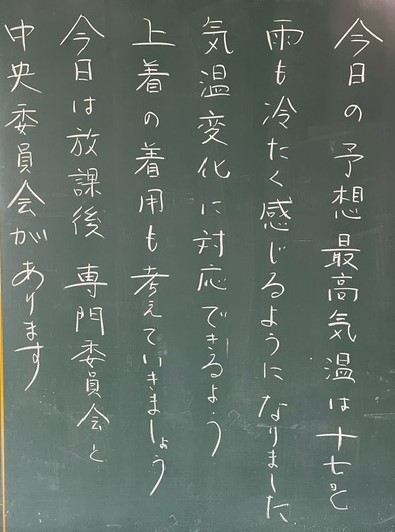 今日の予想最高気温は十七℃
雨も冷たく感じるようになりました
気温変化に対応できるよう
上着の着用も考えていきましょう
今日は放課後専門委員会と
中央委員会があります